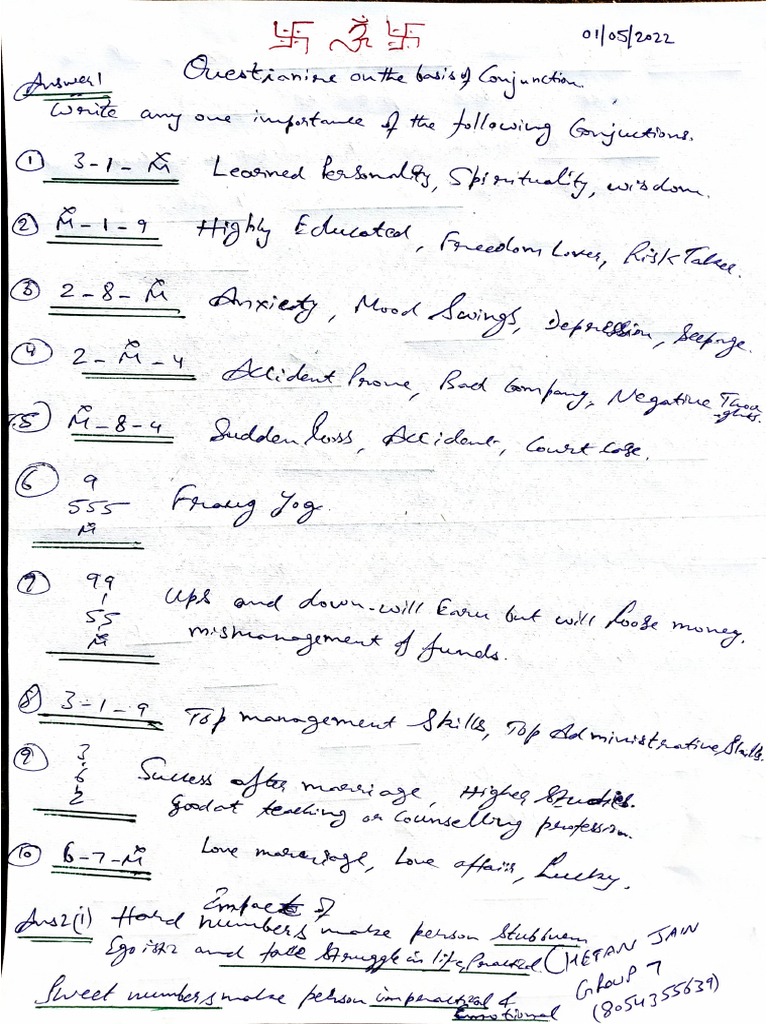 卐 ॐ 卐
01/05/2022
Answer 1 Questianire on the basis of Conjunction.
Write any one importance of the following Conjuctions.
① 3-1-M̆ Learned Personality, Spirituality, wisdom.
② M̆-1-9 Highly Educated, Freedom Lover, Risk Taker.
③ 2-8-M̆ Anxiety, Mood Swings, Depression, Seepage.
④ 2-M̆-4 Accident Prone, Bad Company, Negative Thoughts.
5 M̆-8-4 Sudden loss, Accident, Court Case.
⑥ 9
555 Yog.
M̆
⑦ 99
1
55 Ups and down-will Earn but will loose money.
M̆ mismanagement of funds.
⑧ 3-1-9 Top management Skills, Top Administrative Skills.
⑨ 3
6 Success after marriage, Higher Studies.
2 Good at teaching or Counselling profession.
⑩ 6-7-M̆ Love marriage, Love affair, Lucky.
Impact of
Ans2(i) Hard numbers make person Stubburn
and face Struggle in life, Practical.
Sweet numbers make person impractical &
Emotional
CHETAN JAIN
GROUP 7
(8054355639)